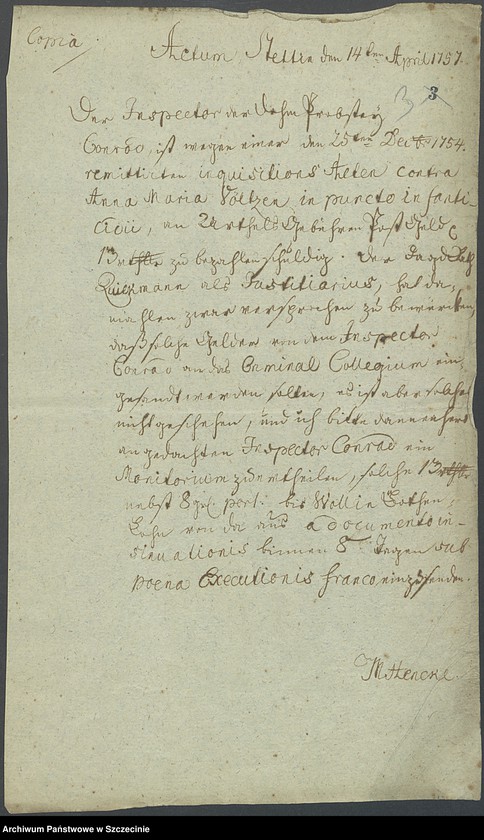 Copia
Actum Stettin den 14ten April 1757.
3 3
Der Inspector der Dohm Probstey
Conrad, ist wegen einer den 25ten Decbr 1754.
remittirten inquisitions Acten contra
Anna Maria Völtzen, in puncto infanti-
cidii, an Urthels Gebühren Post Geld
13 rthlr zu bezahlen schuldig. Der
Quickmann als Justitiarius, hat da-
mahlen zwar versprochen zu bewürcken,
daß solche Gelder von dem Inspector
Conrad an das Criminal Collegium ein-
gesandt werden solten, es ist aber solches
nicht geschehen, und ich bitte dannenhero
an gedachten Inspector Conrad ein
Monitorium zu ertheilen, solche 13 rthlr
nebst 8 gl. port. bis Wollin Bothen-
Lohn von da aus a documento in-
sinuationis binnen 8 Tagen sub
poena Executionis franco einzusenden.
MHencke
Archiwum Państwowe w Szczecinie